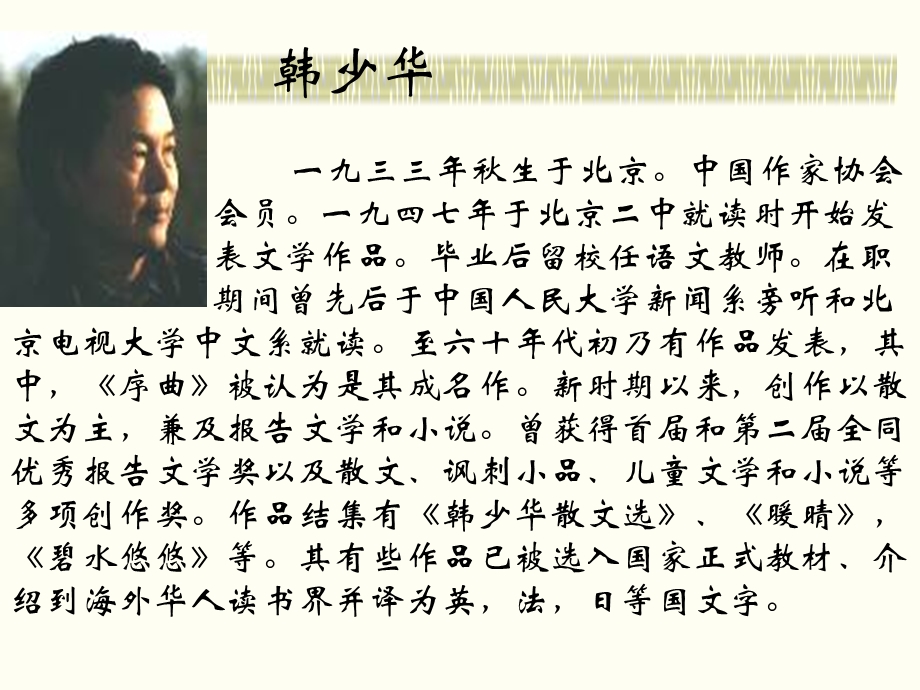 韩少华
一九三三年秋生于北京。中国作家协会
会员。一九四七年于北京二中就读时开始发
表文学作品。毕业后留校任语文教师。在职
期间曾先后于中国人民大学新闻系旁听和北
京电视大学中文系就读。至六十年代初乃有作品发表，其
中，《序曲》被认为是其成名作。新时期以来，创作以散
文为主，兼及报告文学和小说。曾获得首届和第二届全同
优秀报告文学奖以及散文、讽刺小品、儿童文学和小说等
多项创作奖。作品结集有《韩少华散文选》、《暖晴》，
《碧水悠悠》等。其有些作品已被选入国家正式教材、介
绍到海外华人读书界并译为英，法，日等国文字。